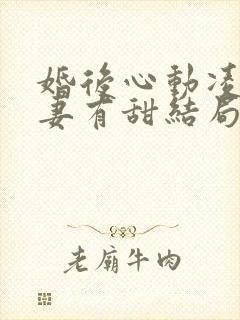 婚後心動凌
妻有甜結局
老廟牛肉